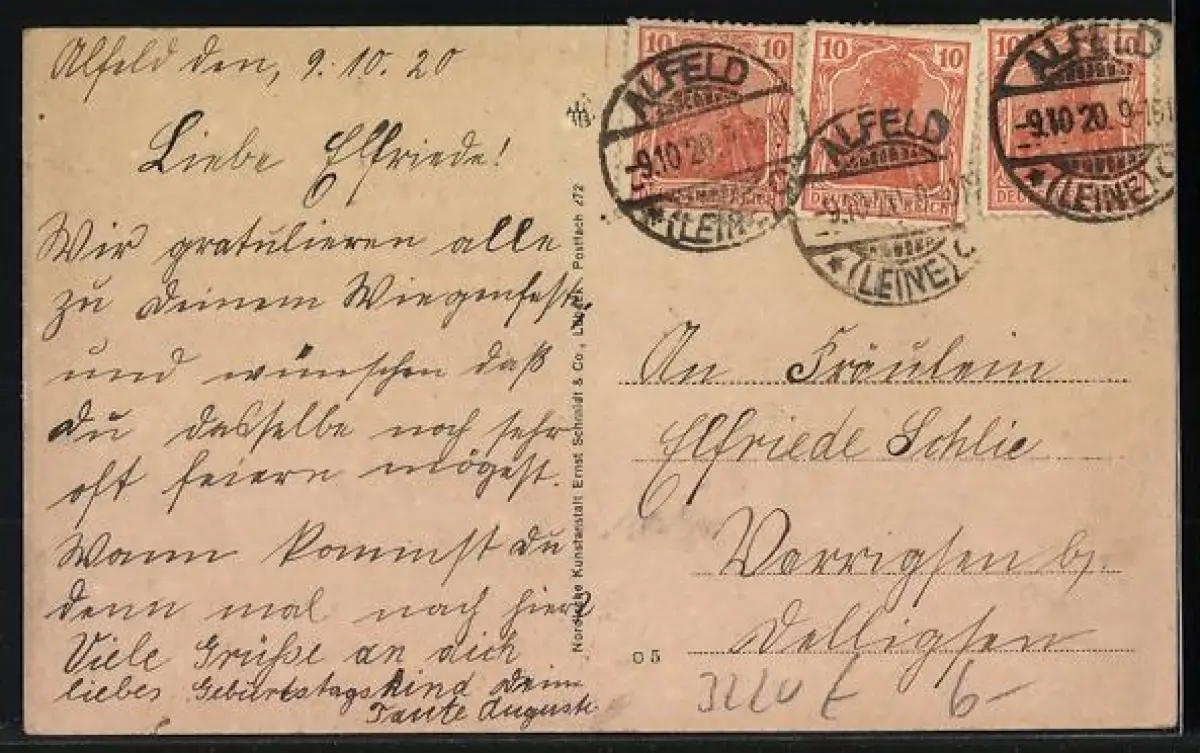 Alfeld den, 9.10.20
Liebe Elfriede!
Wir gratulieren alle
zu Deinem Wiegenfeste
und wünschen daß
Du dasselbe noch sehr
oft feiern mögest.
Wann kommst Du
denn mal nach hier?
Viele Grüße an dich
liebes Geburtstagskind Deine
Tante Auguste
Nordische Kunstanstalt Ernst Schmidt & Co., Lübeck, Postfach 272
05
10 10
10 10
10 10
DEUTSCHES REICH
DEUTSCHES REICH
ALFELD
-9.10.20.
*(LEINE) C
ALFELD
-9.10.20.
*(LEINE) C
ALFELD
-9.10 20. 9-
*(LEINE) C
An Fräulein
Elfriede Schlie
Varrigsen b/
Delligsen
6-